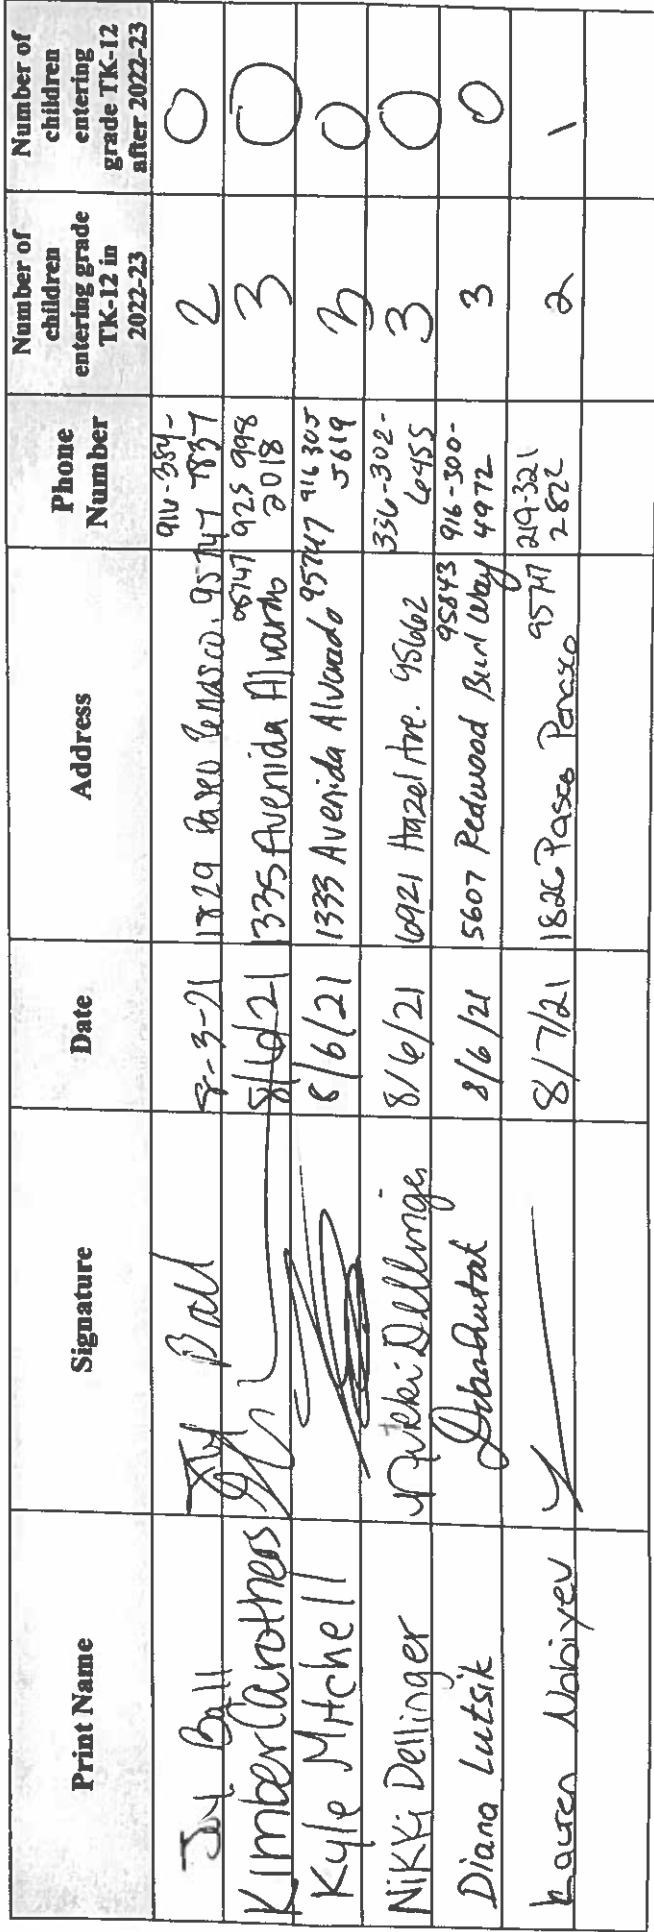 Print Name
Signature
Date
Address
Phone
Number
Number of
children
entering grade
TK-12 in
2022-23
Number of
children
entering
grade TK-12
after 2022-23
Ball
Ball
8-3-21
1829 Paseo Penasco. 95747
916-384-
7837
2
0
Kimber Carothers
8/6/21
1335 Avenida Alvarado
95747
925 998
2018
3
0
Kyle Mitchell
8/6/21
1333 Avenida Alvarado 95747
916 305
5619
3
0
Nikki Dellinger
Nikki Dellinger
8/6/21
6921 Hazel Ave. 95662
336-302-
6455
3
0
Diana Lutsik
8/6/21
5607 Redwood Burl Way
95843
916-300-
4972
3
0
Lauren Nabiyev
8/7/21
1826 Paseo Penasco
95747
219-321
2822
2
1